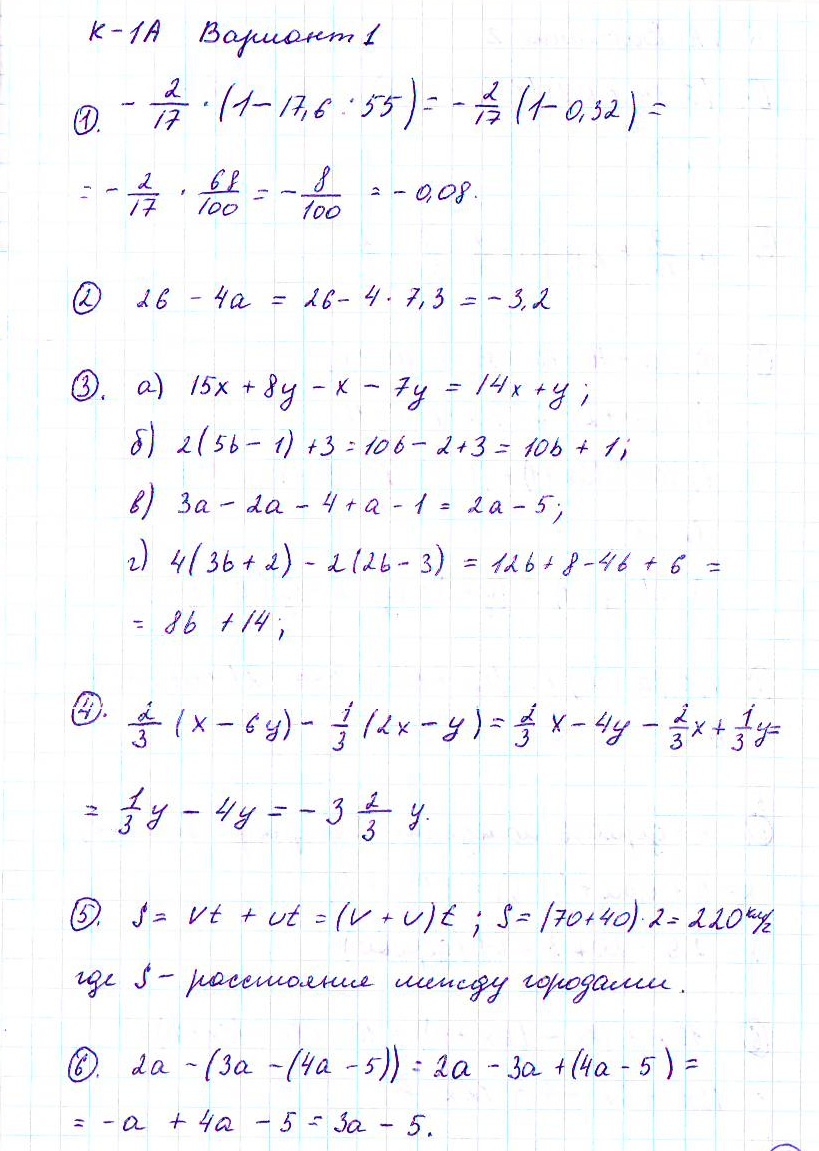 К-1А Вариант 1
①. - 2/17 · (1 - 17,6 : 55) = - 2/17 (1 - 0,32) =
= - 2/17 · 68/100 = - 8/100 = - 0,08.
② 26 - 4a = 26 - 4 · 7,3 = - 3,2
③. а) 15x + 8y - x - 7y = 14x + y;
б) 2(5b - 1) + 3 = 10b - 2 + 3 = 10b + 1;
в) 3a - 2a - 4 + a - 1 = 2a - 5;
г) 4(3b + 2) - 2(2b - 3) = 12b + 8 - 4b + 6 =
= 8b + 14;
④. 2/3 (x - 6y) - 1/3 (2x - y) = 2/3 x - 4y - 2/3 x + 1/3 y =
= 1/3 y - 4y = - 3 2/3 y.
⑤. S = Vt + Ut = (V + U)t; S = (70+40)·2 = 220 км/г
где S - расстояние между городами.
⑥. 2a - (3a - (4a - 5)) = 2a - 3a + (4a - 5) =
= - a + 4a - 5 = 3a - 5.